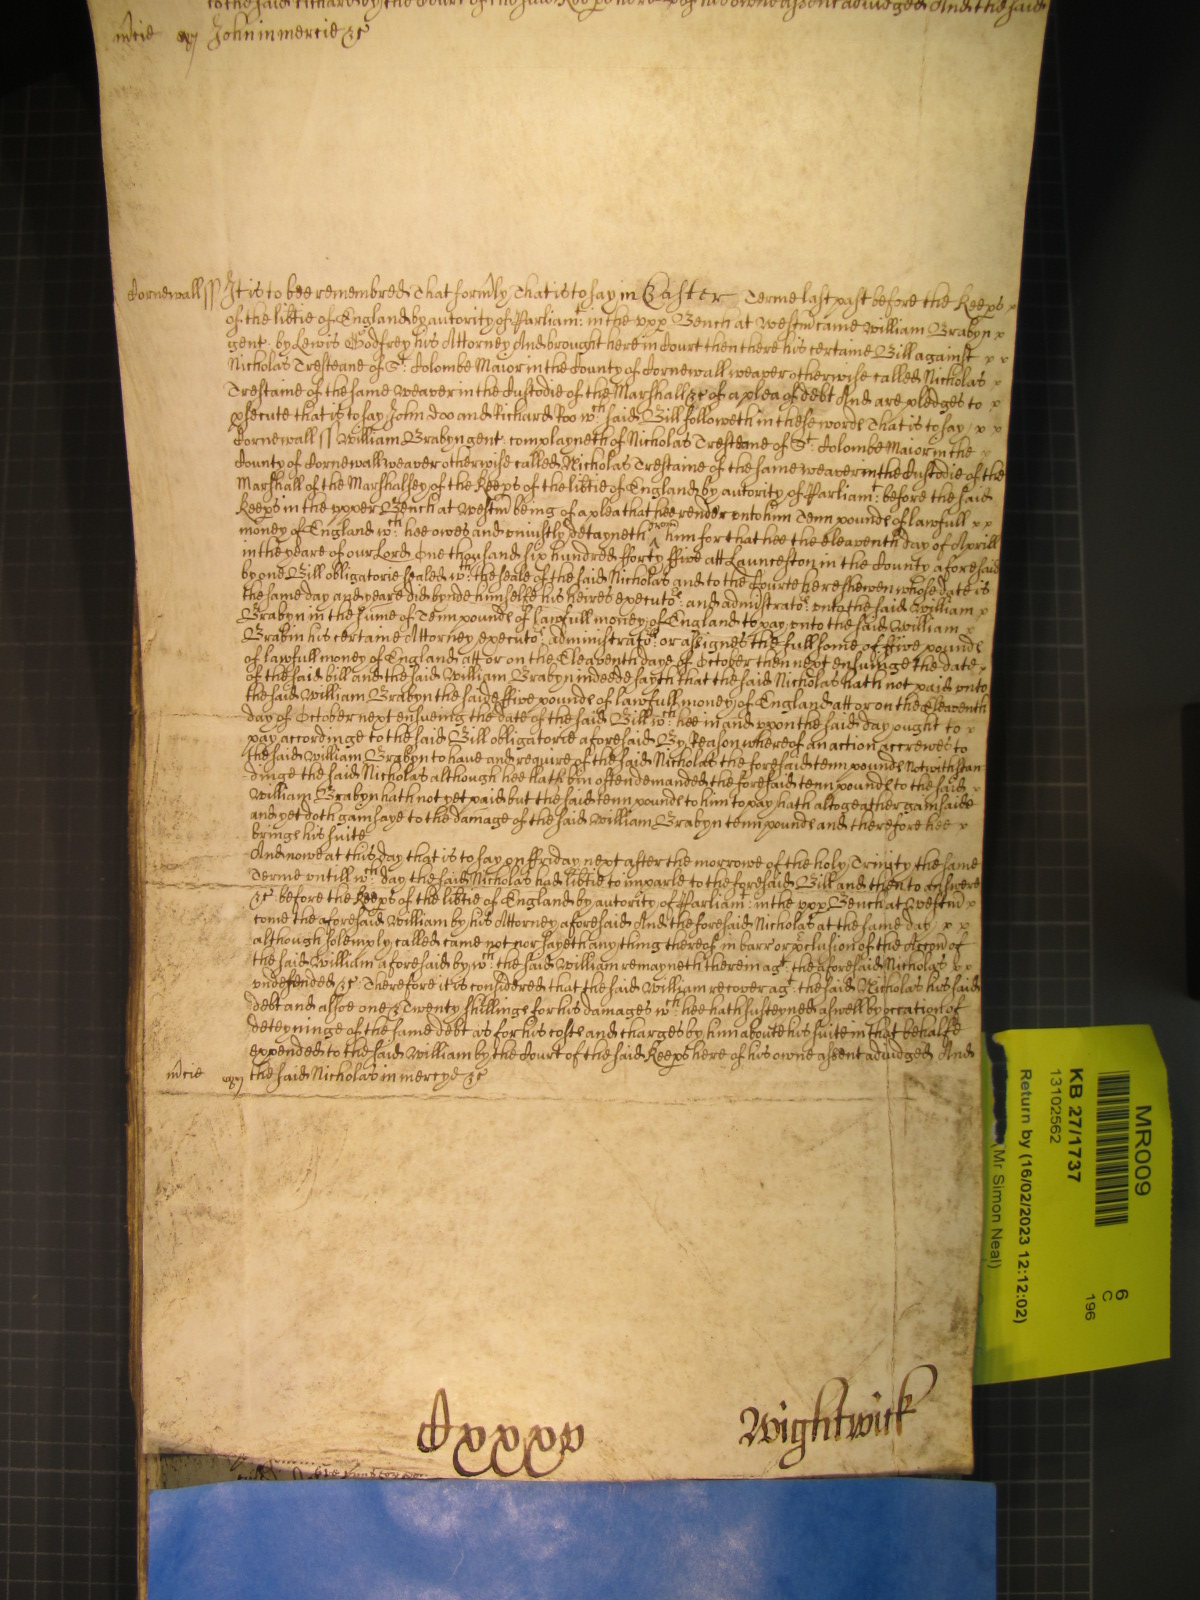 to the said Richard by the Court of the said Keeps here of his owne assent adiudged And the said
mcie John in mercie &c
Cornewall ss It is to bee remembred That formly That is to say in Easter Terme last past before the Keeps
of the libtie of England by autority of Parliamt: in the vpp Bench at Westm came William Brabyn
gent. by Lewis Godfrey his Attorney And brought here in Court then there his certaine Bill against
Nicholas Tresteane of St. Colombe Maior in the County of Cornewall weaver otherwise called Nicholas
Trestaine of the same Weaver in the Custodie of the Marshall &c of a plea of debt And are pledges to
psecute that is to say John Doo and Richard Roo wch said Bill followeth in these words That is to say
Cornewall ss William Brabyn gent. complayneth of Nicholas Tresteane of St. Colombe Maior in the
County of Cornewall weaver otherwise called Nicholas Trestaine of the same weaver in the Custodie of the
Marshall of the Marshalsey of the Keeps of the libtie of England by autority of Parliamt: before the said
Keeps in the vpper Bench at Westm being of a plea that hee render vnto him Tenn pounds of lawfull
money of England wch: hee owes and vniustly detayneth from him for that hee the eleaventh day of Aprill
in the yeare of our Lord One thousand six hundred fforty ffive att Launceston in the County aforesaid
by one Bill obligatorie sealed wth: the seale of the said Nicholas and to the Courte here shewen whose date is
the same day and yeare did bynde himselfe his heires executors: and administrators: vnto the said William
Brabyn in the sume of Tenn pounds of lawfull money of England to pay vnto the said William
Brabin his certaine Attorney executors administrators: or assignes the full some of ffive pounds
of lawfull money of England att or on the Eleaventh daye of October then next ensuinge the date
of the said bill and the said William Brabyn indeede sayth that the said Nicholas hath not paid vnto
the said William Brabyn the said ffive pounds of lawfull money of England att or on the Eleaventh
day of October next ensueing the date of the said Bill wch: hee in and vpon the said day ought to
pay accordinge to the said Bill obligatorie aforesaid By Reason whereof an action accrewes to
the said William Brabyn to have and require of the said Nicholas the foresaid tenn pounds Notwithstan-
dinge the said Nicholas although hee hath bin often demanded the foresaid tenn pounds to the said
William Brabyn hath not yet paid but the said tenn pounds to him to pay hath altogeather gainsaide
and yet doth gainsaye to the damage of the said William Brabyn tenn pounds and therefore hee
brings his suite
And nowe at this day that is to say on ffriday next after the morrowe of the holy Trinity the same
Terme vntill wch: day the said Nicholas had libtie to imparle to the foresaid Bill and then to answere
&c before the Keeps of the libtie of England by autority of Parliamt: in the vpp Bench at Westm
come the aforesaid William by his Attorney aforesaid And the foresaid Nicholas at the same day
although solemply called came not nor sayeth any thing thereof in barr or pclusion of the Accon of
the said William aforesaid by wch: the said William remayneth therein agt: the aforesaid Nicholas
vndefended &c Therefore it is considered that the said William recover agt: the said Nicholas his said
debt and alsoe one & Twenty shillings for his damages wch: hee hath susteyned aswell by occation of
deteyninge of the same debt as for his costs and charges by him aboute his suite in that behalfe
expended to the said William by the Court of the said Keeps here of his owne assent adiudged And
mcie the said Nicholas in mercye &c
Cxxxv Wightwick
MR009
6
C
196
KB 27/1737
13102562
Return by (16/02/2023 12:12:02)
(Mr Simon Neal)